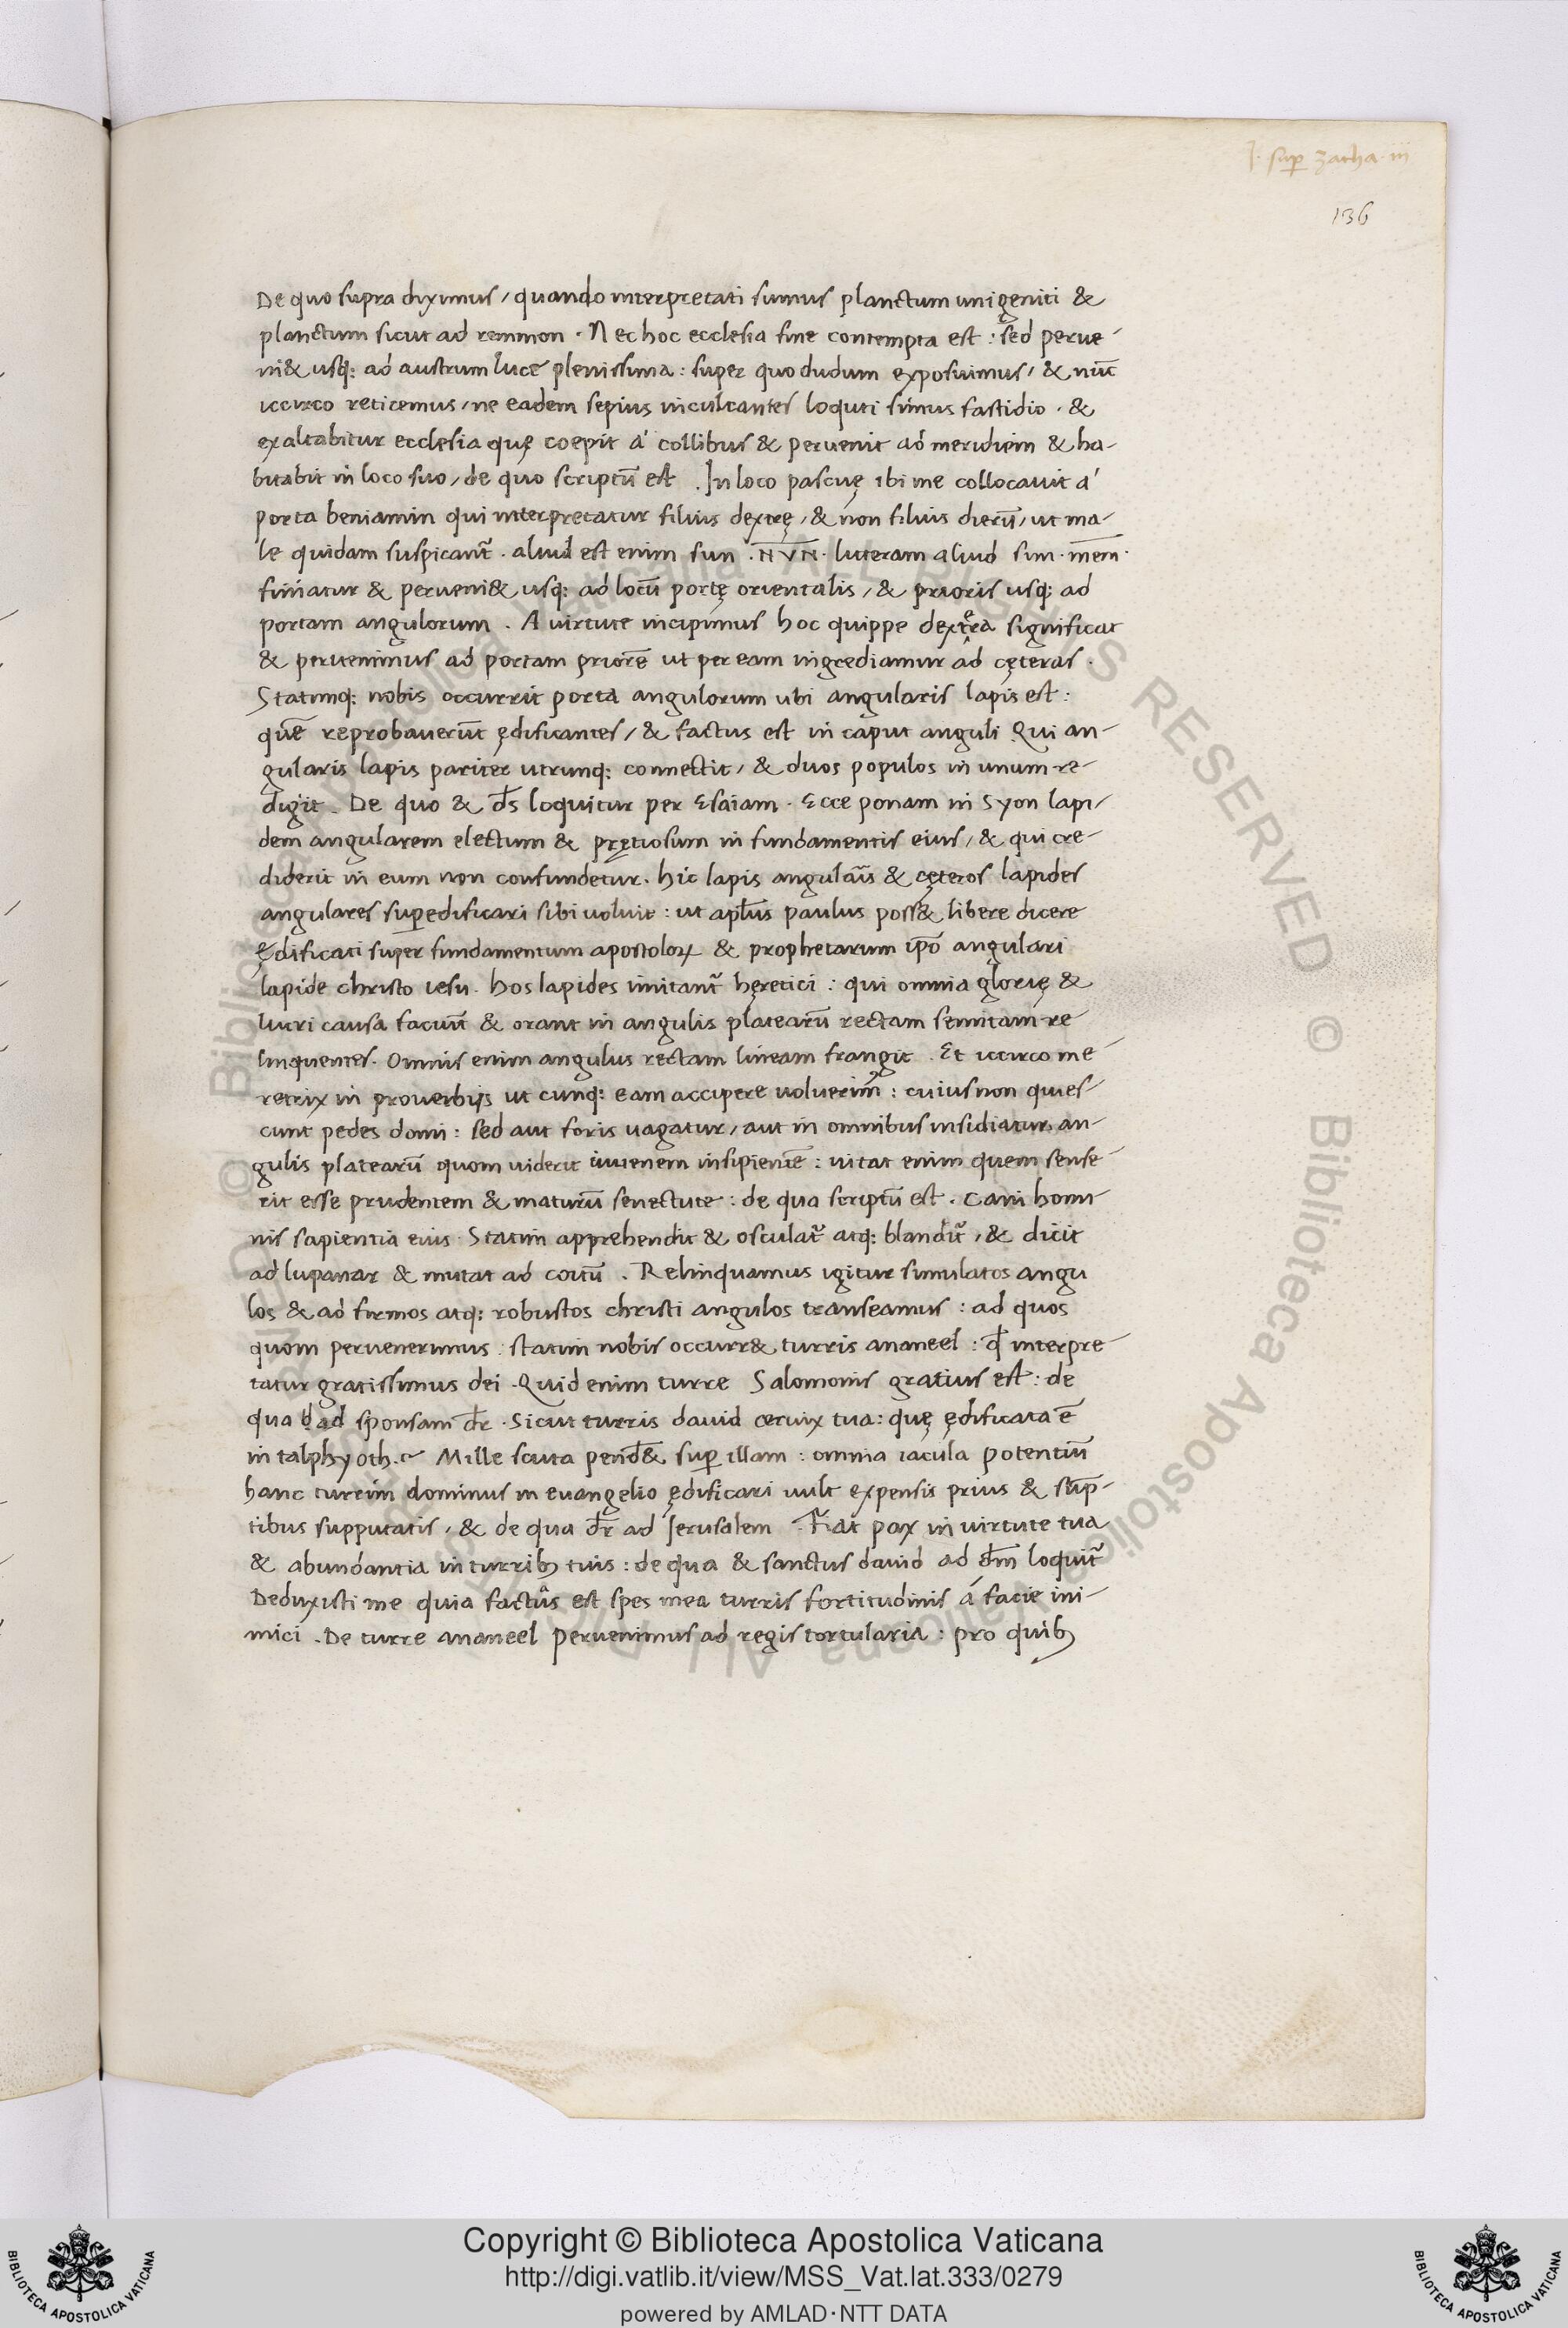 I. sup̱ zacha. iii
136
De quo supra diximus / quando interpretati sumus planctum unigeniti &
planctum sicut ad remmon . Nec hoc ecclesia fine contempta est : sed perue-
ni& usq: ad austrum luce plenissima : super quo dudum exposuimus / & nūc
iccirco reticemus / ne eadem sepius inculcantes loquti simus fastidio . &
exaltabitur ecclesia quę coepit á collibus & peruenit ad meridiem & ha-
bitabit in loco suo / de quo scriptū est . In loco pascuę ibi me collocauit á
porta beniamin qui interpretatur filius dextrę / & non filius dierū / ut ma-
le quidam suspicant᷑ . aliud est enim sun . NVN . litteram aliud sim . mem .
finiatur & perueni& usq: ad locū portę orientalis / & prioris usq: ad
portam angulorum . A uirtute incipimus hoc quippe dextera significat
& peruenimus ad portam priorē ut per eam ingrediamur ad cęteras .
Statimq: nobis occurrit porta angulorum ubi angularis lapis est :
quē reprobauerūt ędificantes / & factus est in caput anguli Qui an-
gularis lapis pariter utrunq: connectit / & duos populos in unum re-
digit . De quo & d̄s loquitur per Esaiam . Ecce ponam in Syon lapi-
dem angularem electum & prętiosum in fundamentis eius / & qui cre-
diderit in eum non confundetur . hic lapis angulāis & cęteros lapides
angulares sup̱edificari sibi uoluit : ut apl̄us paulus poss& libere dicere
Ędificati super fundamentum apostoloꝝ & prophetarum ip̄o angulari
lapide christo iesu . hos lapides imitant᷑ hęretici : qui omnia glorię &
lucri causa faciūt & orant in angulis platearū rectam semitam re
linquentes . Omnis enim angulus rectam lineam frangit . Et iccirco me-
retrix in prouerbijs ut cunq: eam accipere uoluerimꝰ : cuius non quies-
cunt pedes domi : sed aut foris uagatur / aut in omnibus insidiatur an-
gulis platearū quom uiderit iuuenem insipientē : uitat enim quem sense-
rit esse prudentem & maturū senectute : de qua scriptū est . Cani homi-
nis sapientia eius . Statim apprehendit & osculat᷑ atq: blandit᷑ / & dicit
ad lupanar & mutat ad coitū . Relinquamus igitur simulatos angu
los & ad firmos atq: robustos christi angulos transeamus : ad quos
quom peruenerimus : statim nobis occurr& turris ananeel : qđ interpre-
tatur gratissimus dei . Quid enim turre Salomonis gratius est : de
qua ad sponsam dr̄ . Sicut turris dauid ceruix tua : quę ędificata ē
in talphyoth . Mille scuta pend& sup̱ illam : omnia iacula potentiū
hanc turrim dominus in euangelio ędificari uult expensis prius & sūp-
tibus supputatis / & de qua dr̄ ad Jerusalem . Fiat pax in uirtute tua
& abundantia in turribꝫ tuis : de qua & sanctus dauid ad dm̄ loquit᷑
Deduxisti me quia factus est spes mea turris fortitudinis á facie ini-
mici . De turre ananeel peruenimus ad regis torcularia : pro quibꝫ
© Biblioteca Apostolica Vaticana ALL RIGHTS RESERVED
Copyright © Biblioteca Apostolica Vaticana
http://digi.vatlib.it/view/MSS_Vat.lat.333/0279
powered by AMLAD·NTT DATA
BIBLIOTECA APOSTOLICA VATICANA
BIBLIOTECA APOSTOLICA VATICANA